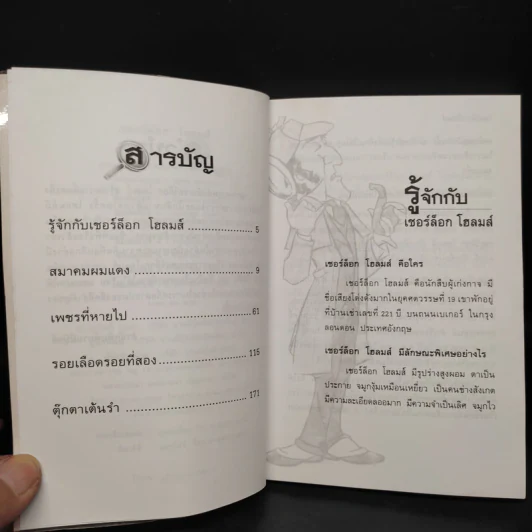 สารบัญ
รู้จักกับเชอร์ล็อก โฮลมส์ 5
สมาคมผมแดง 9
เพชรที่หายไป 61
รอยเลือดรอยที่สอง 115
ตุ๊กตาเต้นรำ 171
รู้จักกับ
เชอร์ล็อก โฮลมส์
เชอร์ล็อก โฮลมส์ คือใคร
เชอร์ล็อก โฮลมส์ คือนักสืบผู้เก่งกาจ มี
ชื่อเสียงโด่งดังมากในยุคศตวรรษที่ 19 เขาพักอยู่
ที่บ้านเช่าเลขที่ 221 บี บนถนนเบเกอร์ ในกรุง
ลอนดอน ประเทศอังกฤษ
เชอร์ล็อก โฮลมส์ มีลักษณะพิเศษอย่างไร
เชอร์ล็อก โฮลมส์ มีรูปร่างสูงผอม ตาเป็น
ประกาย จมูกงุ้มเหมือนเหยี่ยว เป็นคนช่างสังเกต
มีความละเอียดลออมาก มีความจำเป็นเลิศ จมูกไว